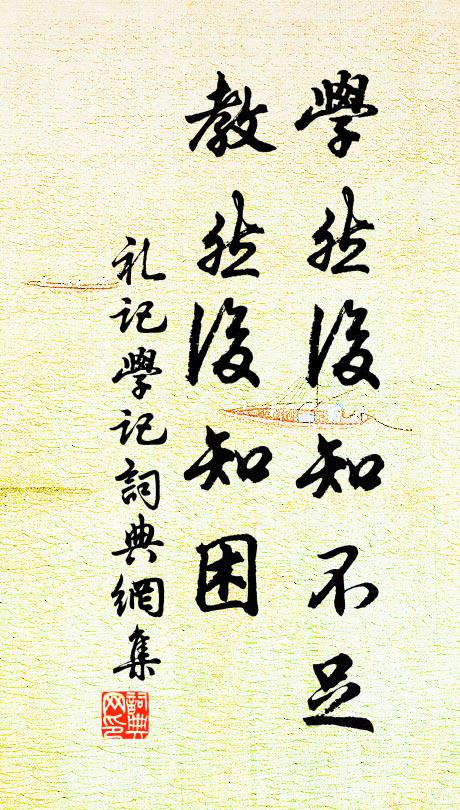 學然後知不足
教然後知困
礼記學記詞典網集
詞典网印